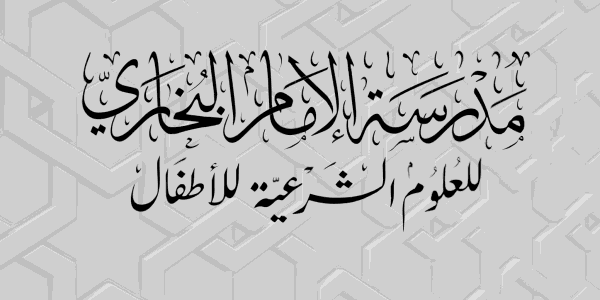 مَدْرَسَة الإمَام البُخَاريّ
للعُلُوم الشَرْعيّة للأطفَال